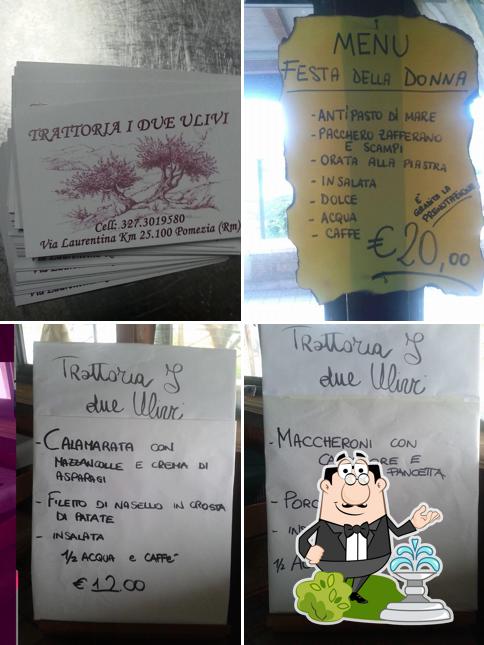 TRATTORIA I DUE ULIVI
Cell: 327.3019580
Via Laurentina Km 25.100 Pomezia (Rm)
Via Laurentina Km 25.100 Pomezia
MENU
FESTA DELLA DONNA
- ANTIPASTO DI MARE
- PACCHERO ZAFFERANO
E SCAMPI
- ORATA ALLA PIASTRA
- INSALATA
- DOLCE
- ACQUA
- CAFFE
È GRADITA LA
PRENOTAZIONE
€ 20,00
Trattoria I
due Ulivi
- CALAMARATA CON
MAZZANCOLLE E CREMA DI
ASPARAGI
- FILETTO DI NASELLO IN CROSTA
DI PATATE
- INSALATA
1/2 ACQUA e CAFFE'
€ 12.00
Trattoria I
due Ulivi
- MACCHERONI CON
E
PANCETTA
-
-
1/2